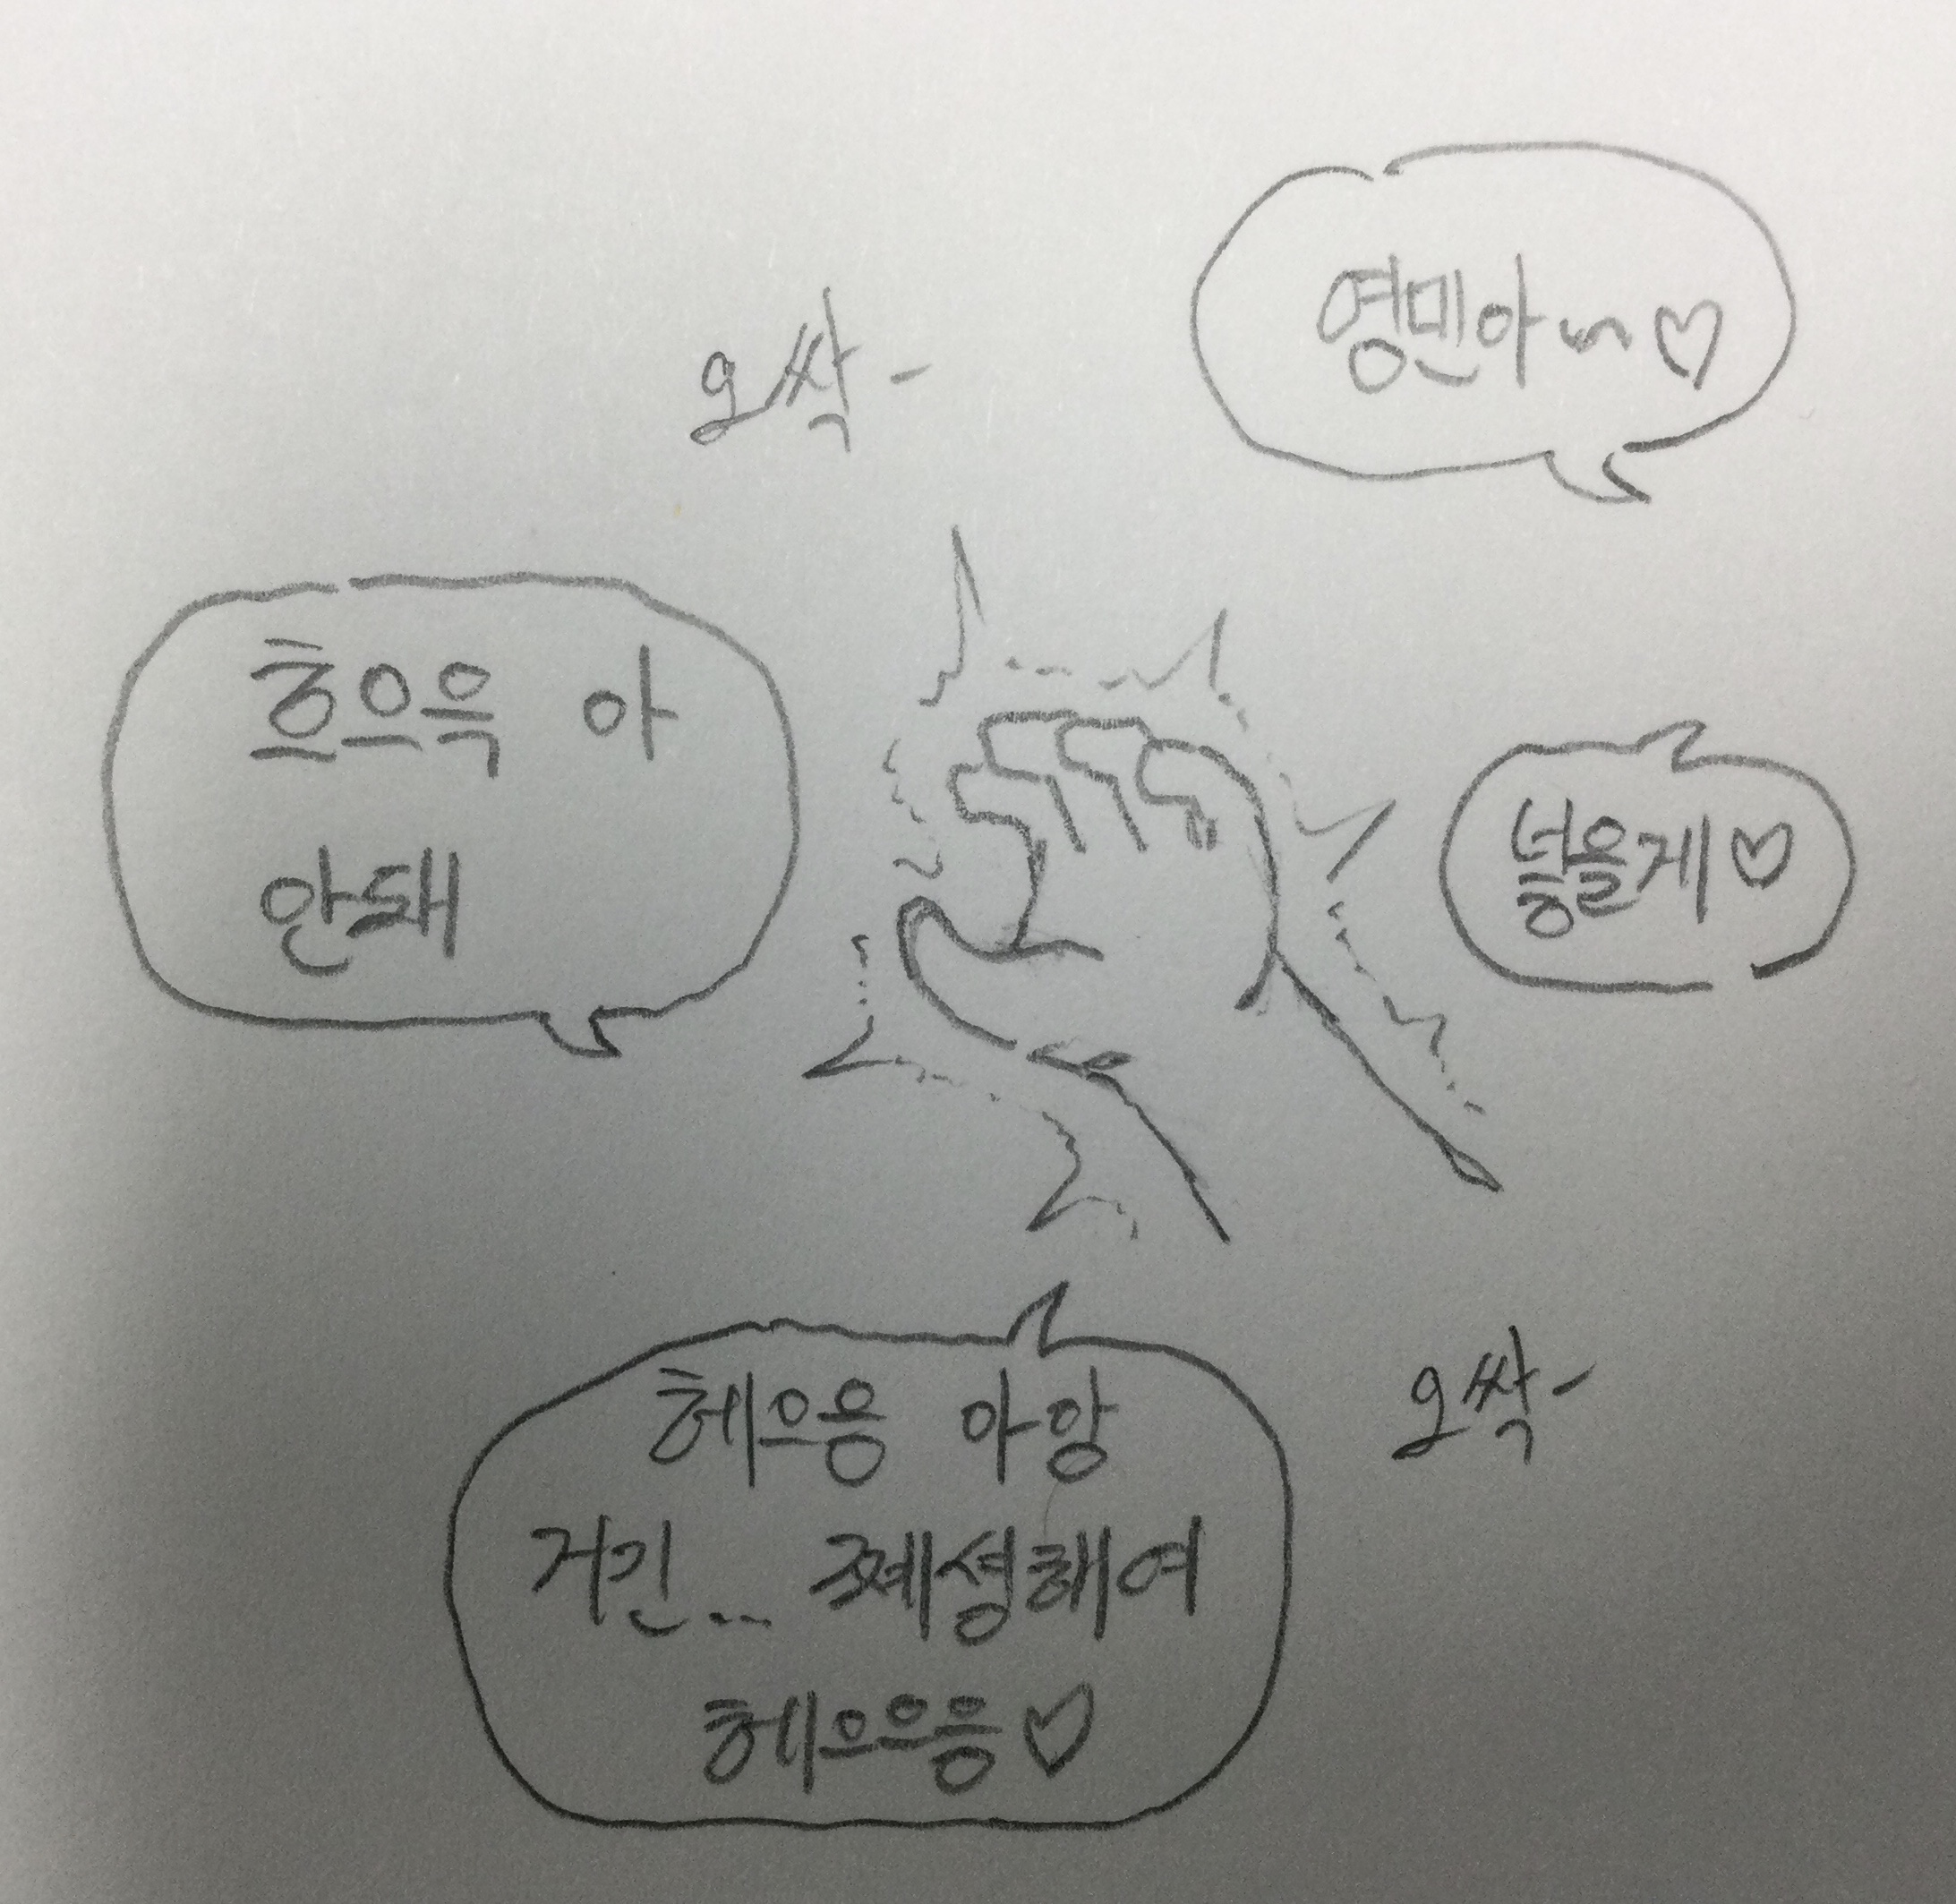 영민아~♡
오싹-
흐으윽 아
안돼
넣을게♡
헤으응 아앙
거긴... 쪠셩해여
헤으으응♡
오싹-